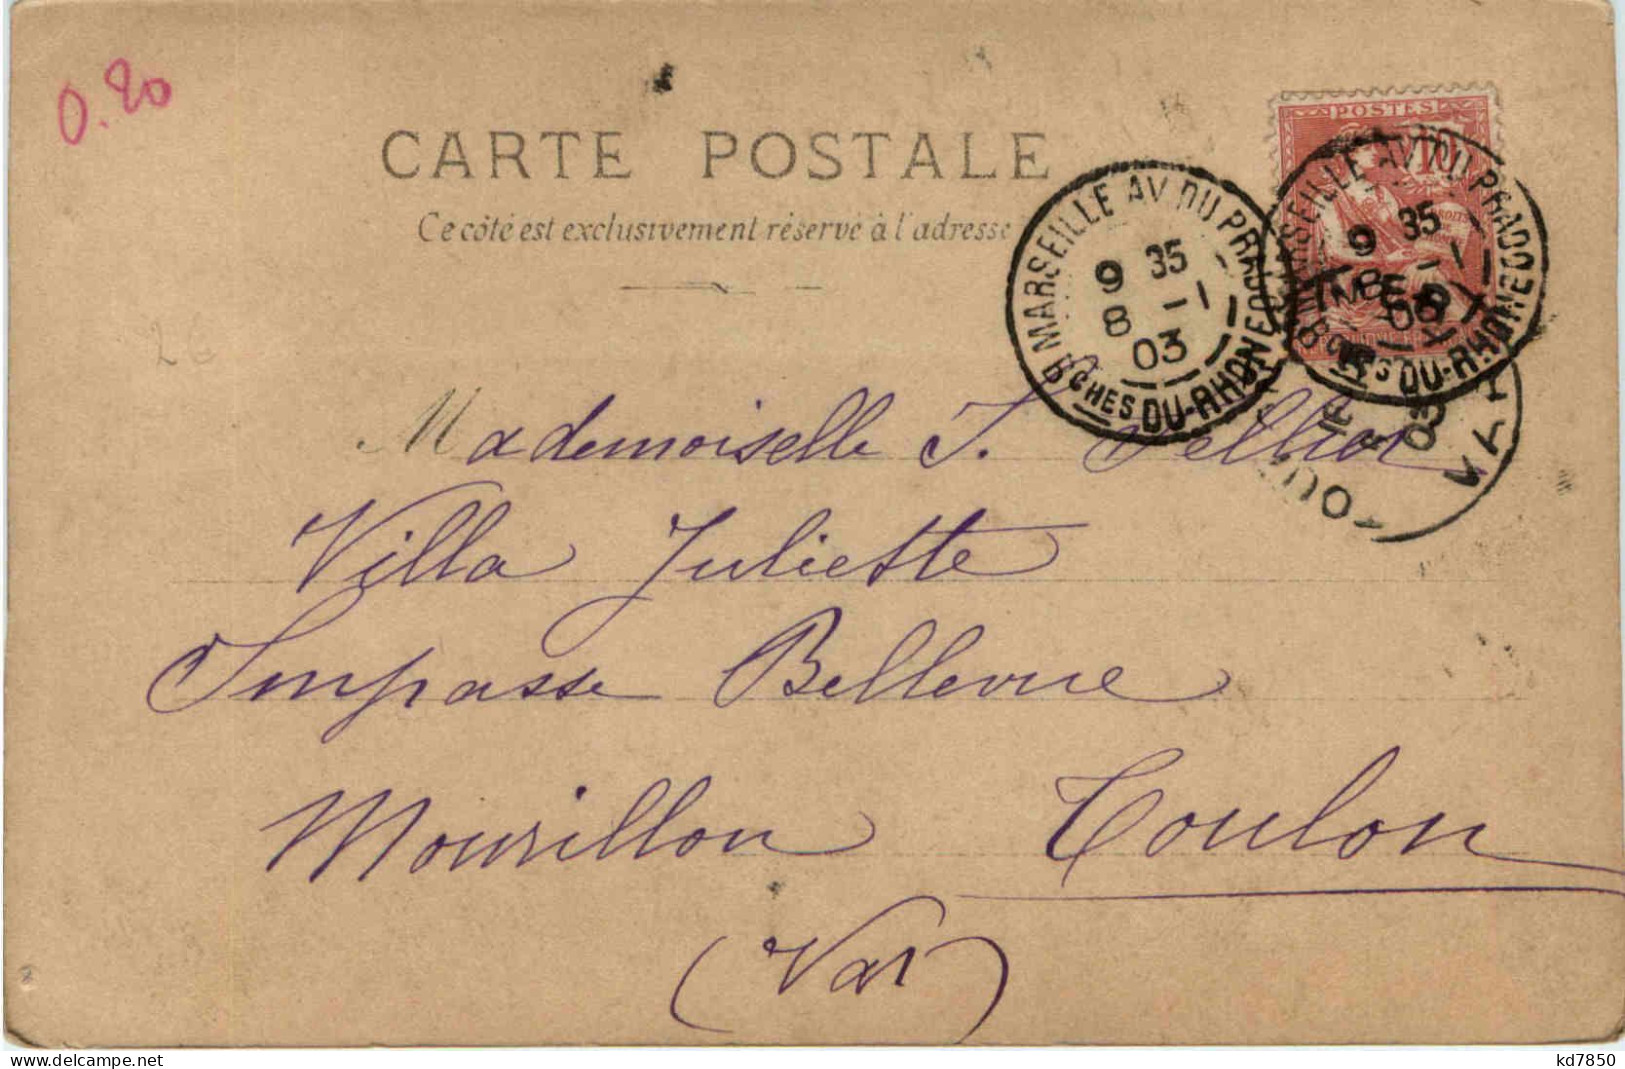 0.20
CARTE POSTALE
Ce côté est exclusivement réservé à l'adresse
POSTES
10
MARSEILLE AV. DU PRADO
9 35
8 -1
03
BCHES DU-RHONE
MARSEILLE AV. DU PRADO
9 35
8 -1
03
BCHES DU-RHONE
TOULON
03
VAR
26
Mademoiselle J. Pelliot
Villa Juliette
Impasse Bellevue
Mourillon Toulon
(Var)
www.delcampe.net
kd7850